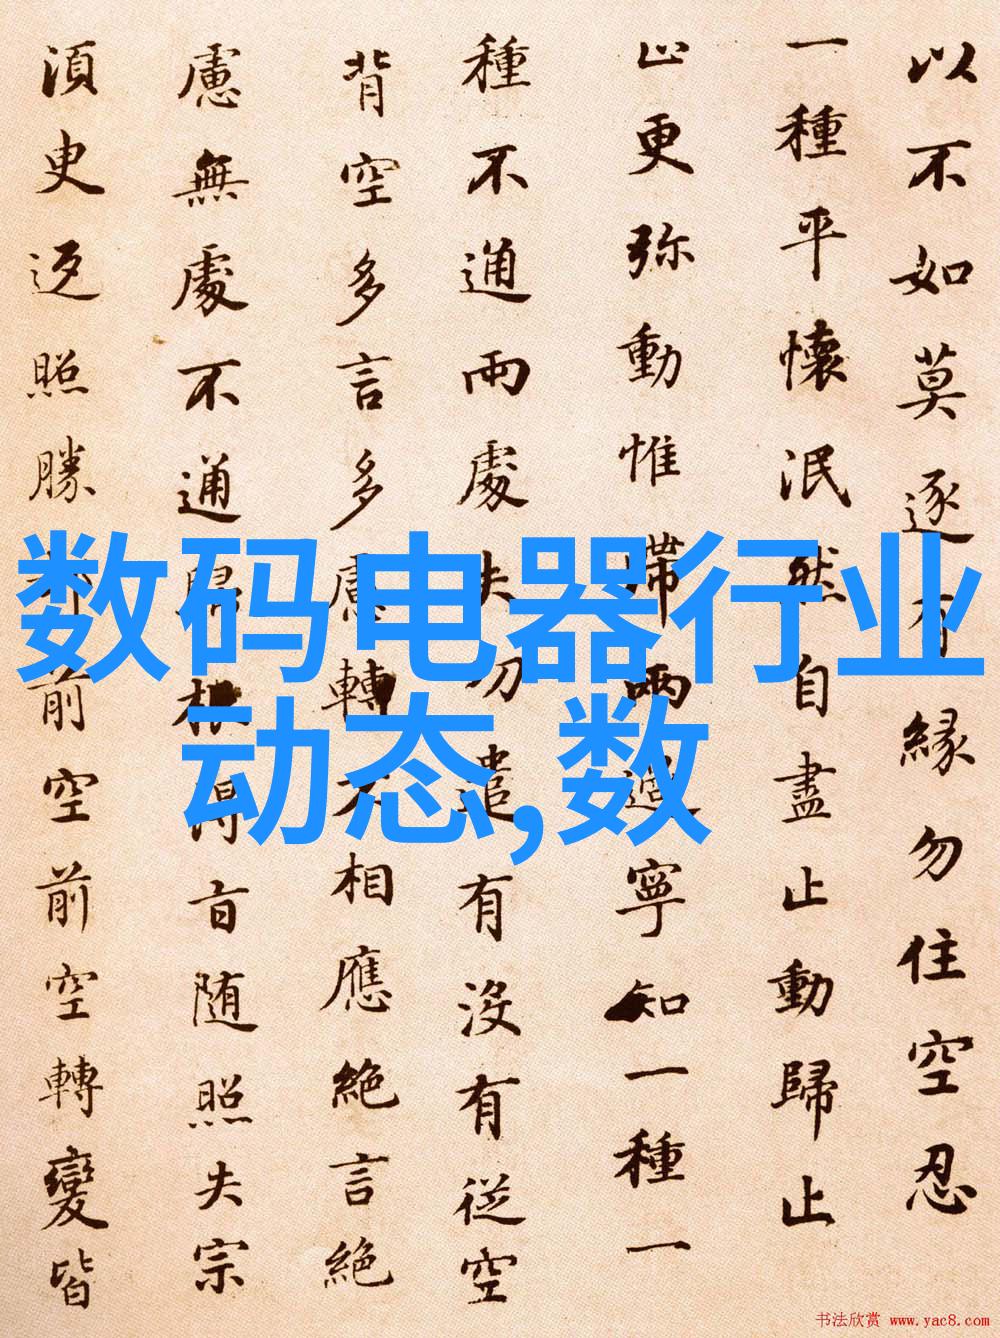 以不如莫逐有緣勿住空忍
一種平懷泯然自盡止動歸止
止更弥動惟滯兩邊寧知一種一
種不通兩處失功遣有沒有從空
背空多言多慮轉不相應絕言絕
慮無處不通歸根得旨随照失宗
須臾返照勝却前空前空轉變皆
数码电器行业
动态,数
书法欣赏 www.yac8.com